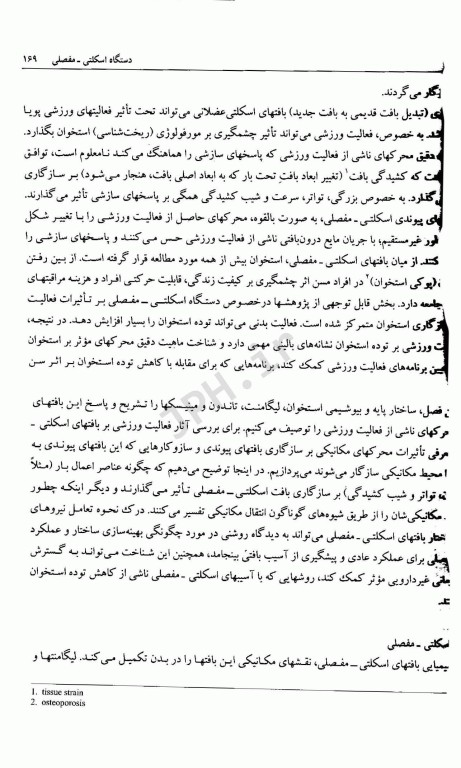 دستگاه اسکلتی ـ مفصلی ۱۶۹
می‌گردند.
(تبدیل بافت قدیمی به بافت جدید) بافتهای اسکلتی‌عضلانی می‌تواند تحت تأثیر فعالیتهای ورزشی پویا
به خصوص، فعالیت ورزشی می‌تواند تأثیر چشمگیری بر مورفولوژی (ریخت‌شناسی) استخوان بگذارد.
دقیق محرکهای ناشی از فعالیت ورزشی که پاسخهای سازشی را هماهنگ می‌کند نامعلوم است، توافق
که کشیدگی بافت۱ (تغییر ابعاد بافتِ تحت بار که به ابعاد اصلی بافت، هنجار می‌شود) بر سازگاری
به خصوص بزرگی، تواتر، سرعت و شیب کشیدگی همگی بر پاسخهای سازشی تأثیر می‌گذارند.
پیوندی اسکلتی ـ مفصلی، به صورت بالقوه، محرکهای حاصل از فعالیت ورزشی را با تغییر شکل
غیرمستقیم، با جریان مایع درون‌بافتی ناشی از فعالیت ورزشی حس می‌کنند و پاسخهای سازشی را
کنند. از میان بافتهای اسکلتی ـ مفصلی، استخوان بیش از همه مورد مطالعه قرار گرفته است. از بین رفتن
(پوکی استخوان)۲ در افراد مسن اثر چشمگیری بر کیفیت زندگی، قابلیت حرکتی افراد و هزینه مراقبتهای
دارد. بخش قابل توجهی از پژوهشها درخصوص دستگاه اسکلتی ـ مفصلی بر تأثیرات فعالیت
استخوان متمرکز شده است. فعالیت بدنی می‌تواند توده استخوان را بسیار افزایش دهد. در نتیجه،
ورزشی بر توده استخوان نشانه‌های بالینی مهمی دارد و شناخت ماهیت دقیق محرکهای مؤثر بر استخوان
برنامه‌های فعالیت ورزشی کمک کند، برنامه‌هایی که برای مقابله با کاهش توده استخوان بر اثر سن
فصل، ساختار پایه و بیوشیمی استخوان، لیگامنت، تاندون و مینیسکها را تشریح و پاسخ این بافتهای
ناشی از فعالیت ورزشی را توصیف می‌کنیم. برای بررسی آثار فعالیت ورزشی بر بافتهای اسکلتی ـ
تأثیرات محرکهای مکانیکی بر سازگاری بافتهای پیوندی و سازوکارهایی که این بافتهای پیوندی به
محیط مکانیکی سازگار می‌شوند می‌پردازیم. در اینجا توضیح می‌دهیم که چگونه عناصر اعمال بار (مثلاً
تواتر و شیب کشیدگی) بر سازگاری بافت اسکلتی ـ مفصلی تأثیر می‌گذارند و دیگر اینکه چطور
مکانیکی‌شان را از طریق شیوه‌های گوناگون انتقال مکانیکی تفسیر می‌کنند. درک نحوه تعامل نیروهای
بافتهای اسکلتی ـ مفصلی می‌تواند به دیدگاه روشنی در مورد چگونگی بهینه‌سازی ساختار و عملکرد
برای عملکرد عادی و پیشگیری از آسیب بافتی بینجامد، همچنین این شناخت می‌تواند به گسترش
غیردارویی مؤثر کمک کند، روشهایی که با آسیبهای اسکلتی ـ مفصلی ناشی از کاهش توده استخوان
اسکلتی ـ مفصلی
بافتهای اسکلتی ـ مفصلی، نقشهای مکانیکی این بافتها را در بدن تکمیل می‌کند. لیگامنتها و
1. tissue strain
2. osteoporosis